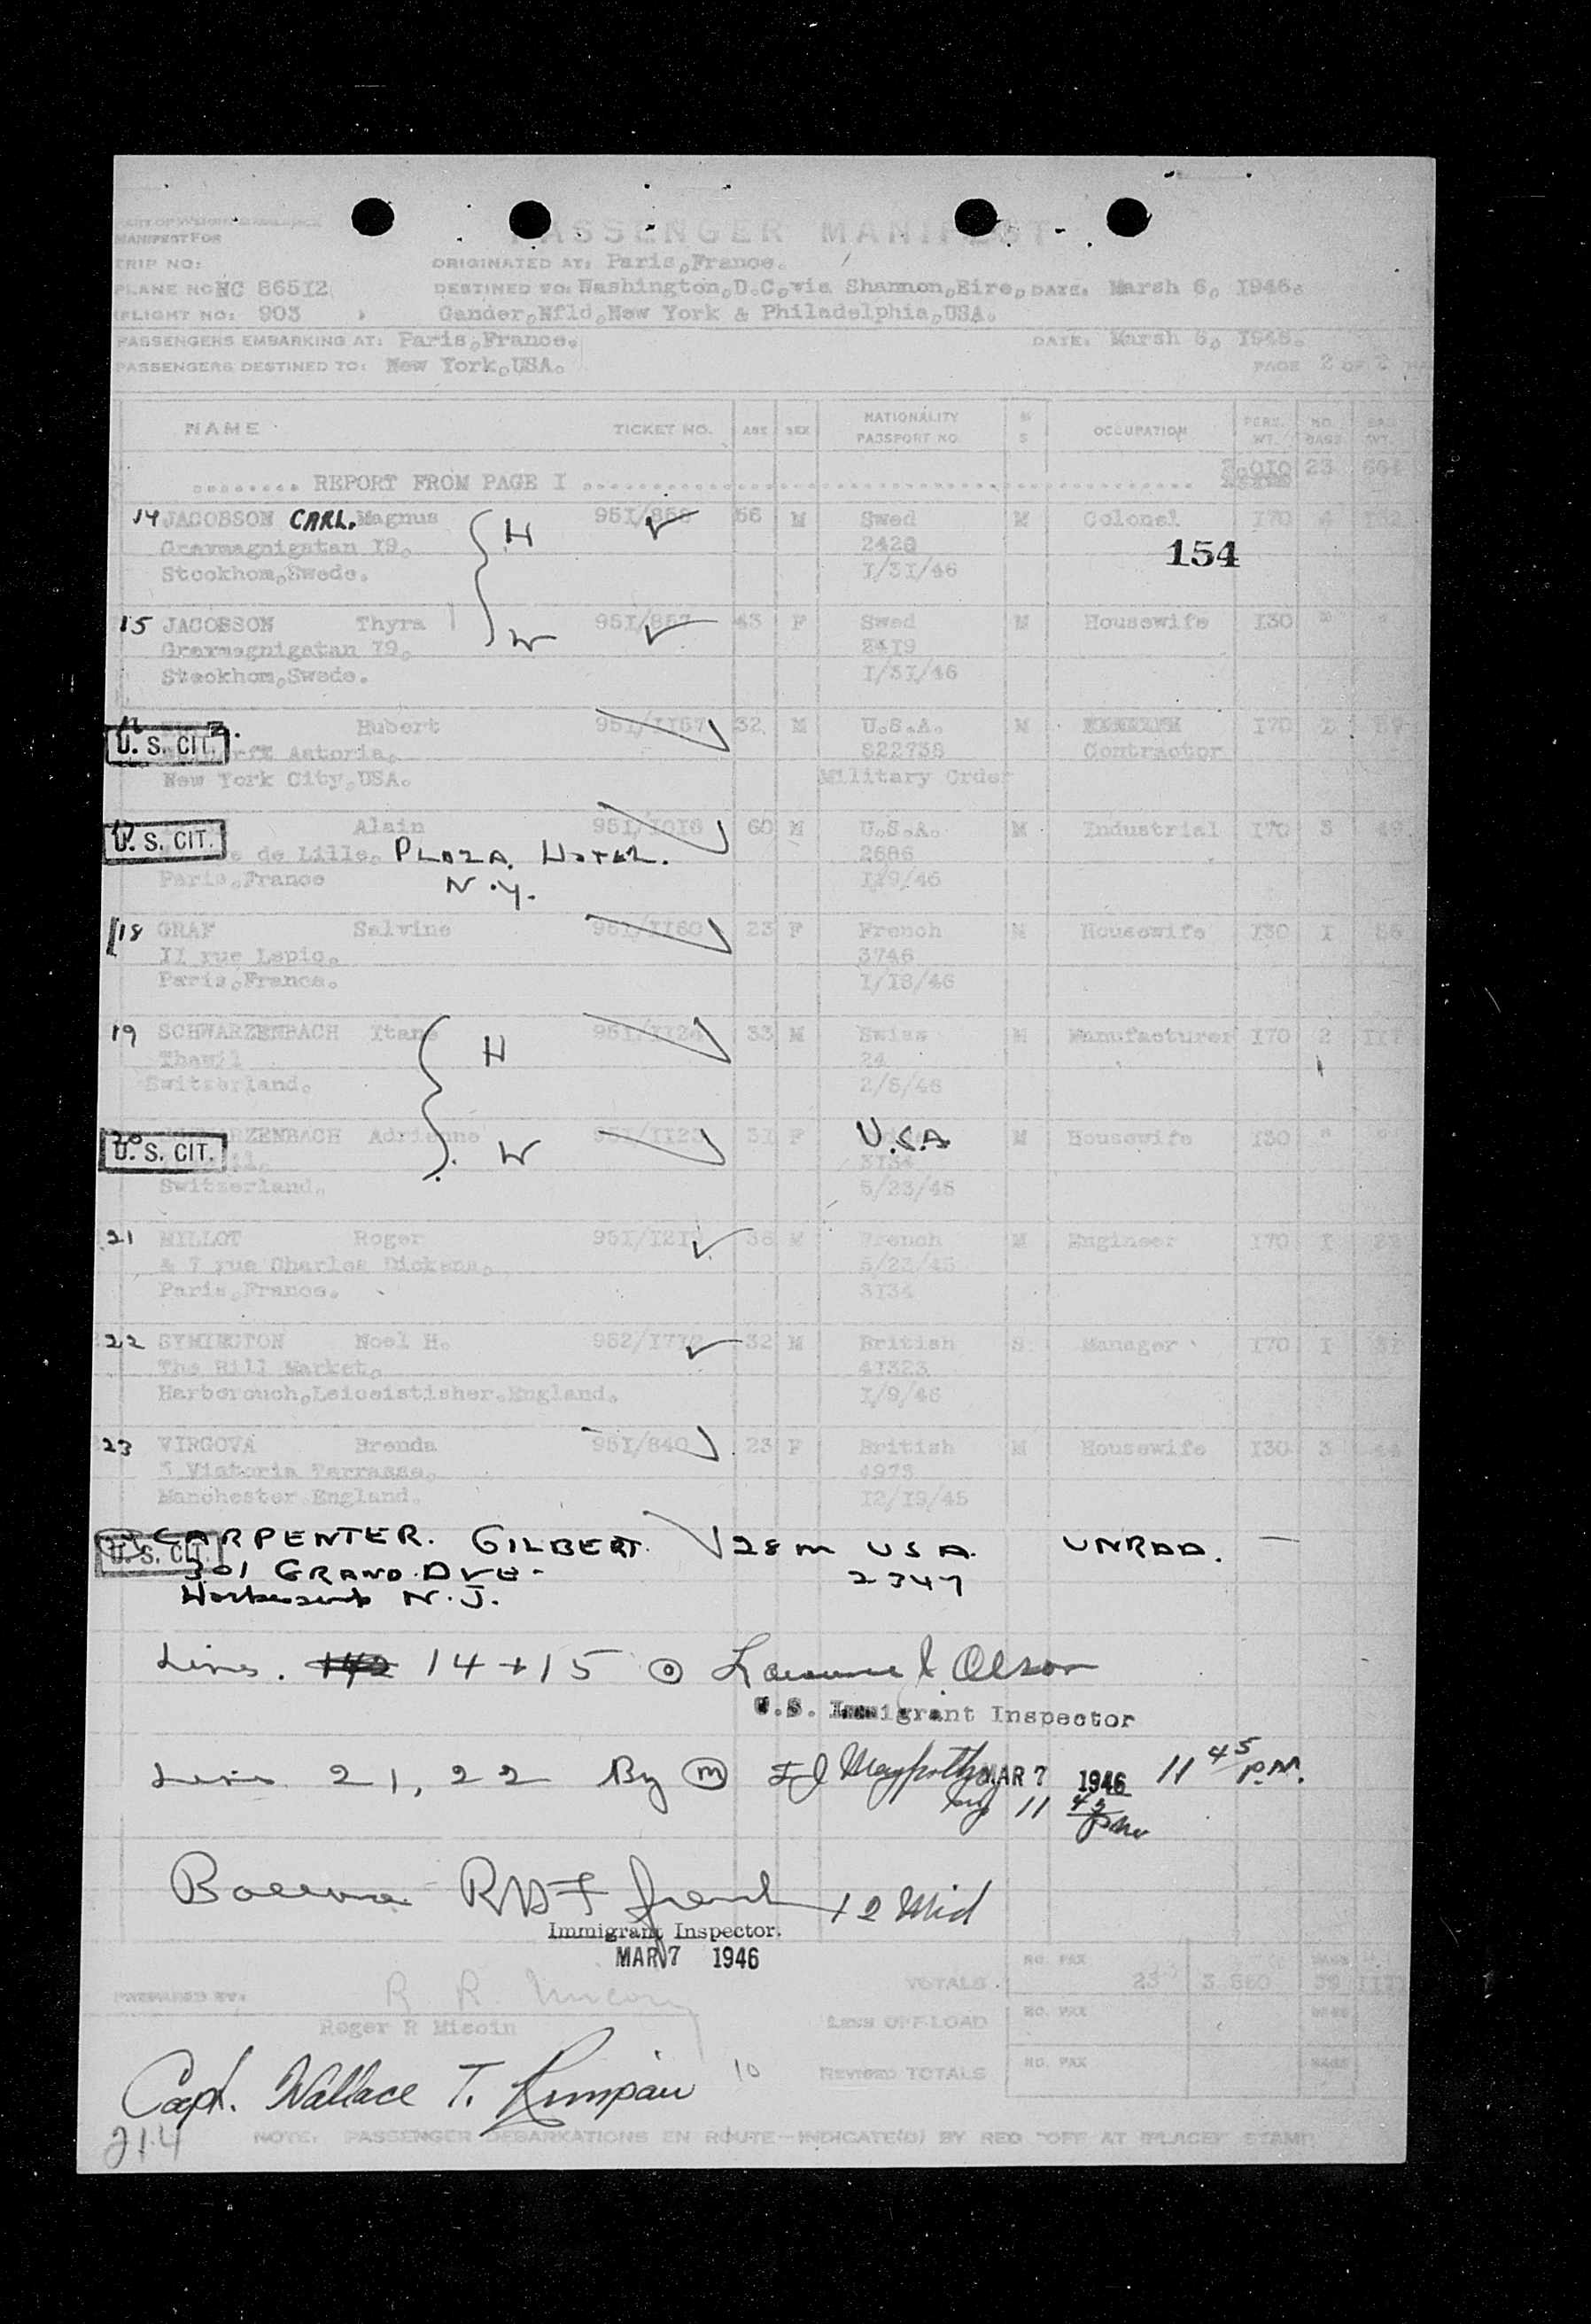 PASSENGER MANIFEST
MANIFEST FOR
TRIP NO:
ORIGINATED AT: Paris,France.
PLANE NO: NC 86512
DESTINED TO: Washington,D.C,via Shannon,Eire, DATE: Marsh 6, 1946.
FLIGHT NO: 903
Gander,Nfld,New York & Philadelphia,USA.
PASSENGERS EMBARKING AT: Paris,France.
DATE: Marsh 6, 1946.
PASSENGERS DESTINED TO: New York,USA.
PAGE 2 OF 2
NAME TICKET NO. AGE SEX NATIONALITY PASSPORT NO. M S OCCUPATION PERS. WT. NO. BAGS BAG WT.
........ REPORT FROM PAGE I ........ 23
14 JACOBSON CARL. Magnus H 951/858 56 M Swed M Colonel 170 4
Gravmagnigatan 19, 2428 154
Stockhom,Swede. 1/31/46
15 JACOBSON Thyra W 951/857 43 F Swed M Housewife 130 " "
Gravmagnigatan 19, 2419
Stockhom,Swede. 1/31/46
Hubert 951/1157 32 M U.S.A. M 170
U. S. CIT. Astoria, 822738 Contractor
New York City,USA. Military Order
Alain 951/1016 60 M U.S.A. M Industrial 170 3 49
U. S. CIT. de Lille, PLAZA. HOTEL. 2686
Paris,France N.Y. 1/9/46
18 GRAF Salvine 951/1160 23 F French M Housewife 130 1
11 rue Lepic, 3746
Paris,France. 1/18/46
19 SCHWARZENBACH H 951/1124 33 M Swiss M Manufacturer 170 2
24
Switzerland. 2/5/46
20 SCHWARZENBACH Adrienne 951/112 31 F U.S.A M Housewife 130 " "
U. S. CIT. W 3134
Switzerland. 5/23/45
21 MILLOT Roger 951/121 38 M French M Engineer 170 1
& 7 rue Charles Dickens, 5/23/45
Paris,France. 3134
22 SYMINGTON Noel H. 952/1772 32 M British S Manager 170 1
The Hill Market, 41323
Harborouch,Leiceistisher.England. 1/9/46
23 VIRGOVA Brenda 951/840 23 F British M Housewife 130 3 44
5 Victoria Terrasse, 4975
Manchester England. 12/19/45
CARPENTER. GILBERT 28 M USA. UNRRA.
U. S. CIT. 301 GRAND AVE. 2347
N.J.
Lines. 14 + 15 Olson
U.S. Immigrant Inspector
Lines 21, 22 By M MAR 7 1946 11 45 P.M.
11 45
Balance French 12 Mid
Immigrant Inspector.
MAR 7 1946
NO. PAX BAGS
TOTALS 23 39
PREPARED BY:
Roger R Micoin
NO. PAX BAGS
Less OFF-LOAD
10 REVISED TOTALS NO. PAX BAGS
Capt. Wallace T.
214
NOTE: PASSENGER DEBARKATIONS EN ROUTE—INDICATE(D) BY RED "OFF AT (PLACE)" STAMP